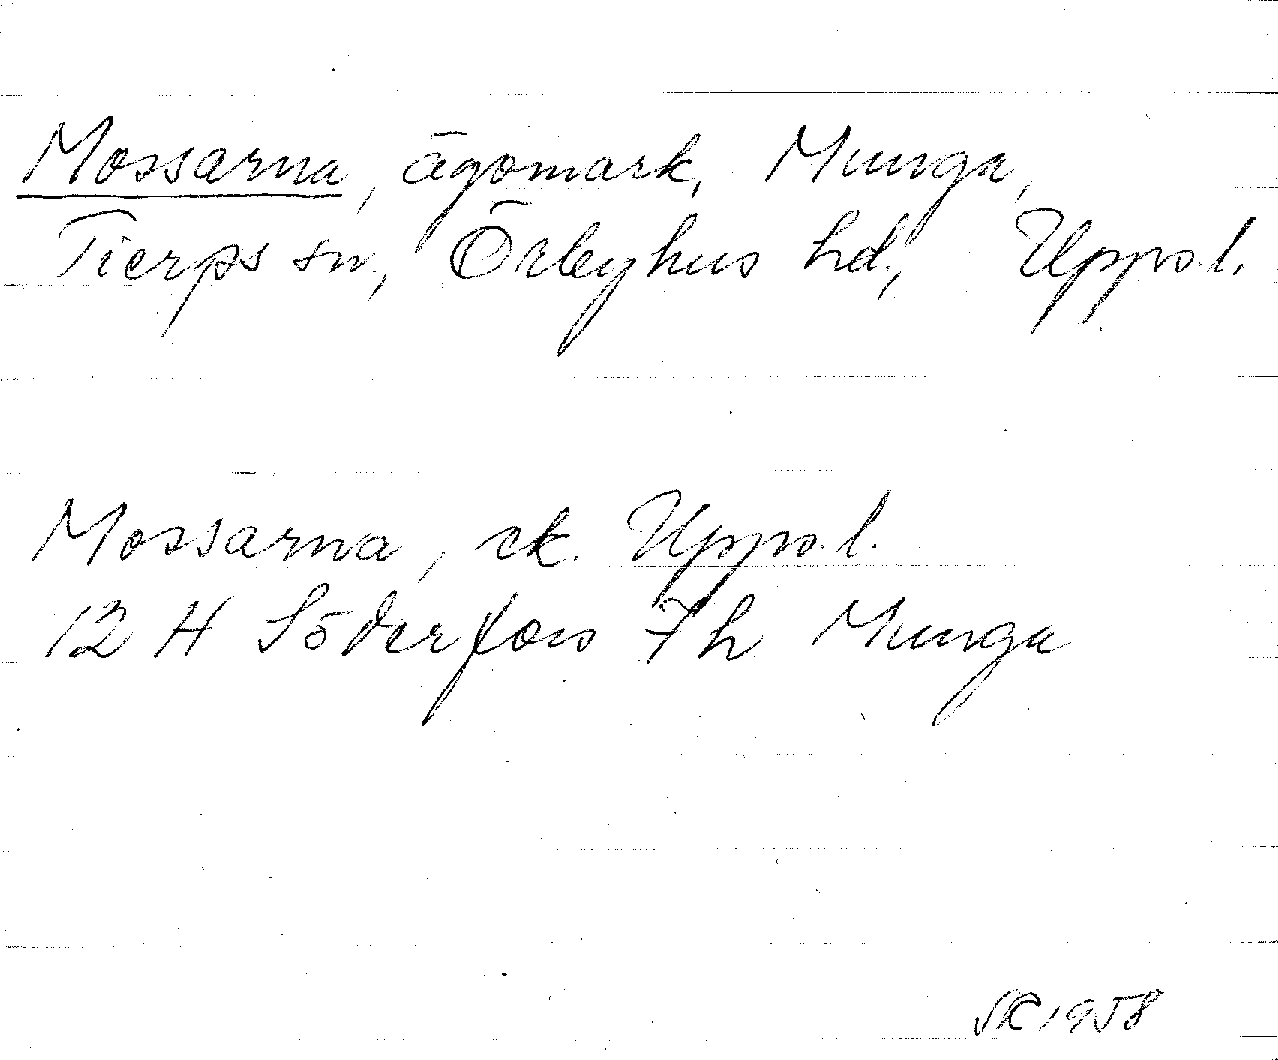 Mossarna, ägomark, Munga,
Tierps sn, Örbyhus hd, Uppsl.
Mossarna, ek. Uppsl.
12 H Söderfors 7h Munga
SK 1958